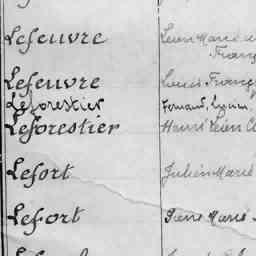 Lefeuvre Léon Marie
Franç
Lefeuvre Louis Franç
Leforestier Fernand, Lucien
Leforestier Henri Léon
Lefort Julien Marie
Lefort Pierre Marie